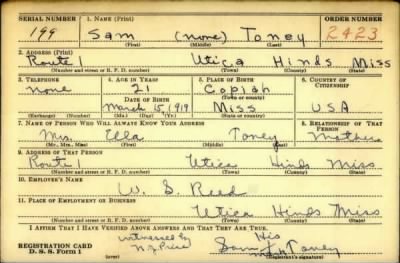 SERIAL NUMBER 1. NAME (Print) ORDER NUMBER
199 Sam (none) Toney 2423
(First) (Middle) (Last)
2. ADDRESS (Print)
Route 1 Utica Hinds Miss
(Number and street or R. F. D. number) (Town) (County) (State)
3. TELEPHONE 4. AGE IN YEARS 5. PLACE OF BIRTH 6. COUNTRY OF CITIZENSHIP
none 21 Copiah
DATE OF BIRTH (Town or county)
March 15, 1919 Miss USA
(Exchange) (Number) (Mo.) (Day) (Yr.) (State or country)
7. NAME OF PERSON WHO WILL ALWAYS KNOW YOUR ADDRESS 8. RELATIONSHIP OF THAT PERSON
Mrs. Ella Toney Mother
(Mr., Mrs., Miss) (First) (Middle) (Last)
9. ADDRESS OF THAT PERSON
Route 1 Utica Hinds Miss
(Number and street or R. F. D. number) (Town) (County) (State)
10. EMPLOYER'S NAME
W. S. Reed
11. PLACE OF EMPLOYMENT OR BUSINESS
Utica Hinds Miss
(Number and street or R. F. D. number) (Town) (County) (State)
I AFFIRM THAT I HAVE VERIFIED ABOVE ANSWERS AND THAT THEY ARE TRUE.
REGISTRATION CARD witnessed by His
D. S. S. Form 1 Price Sam x Toney
mark
(Registrant's signature)